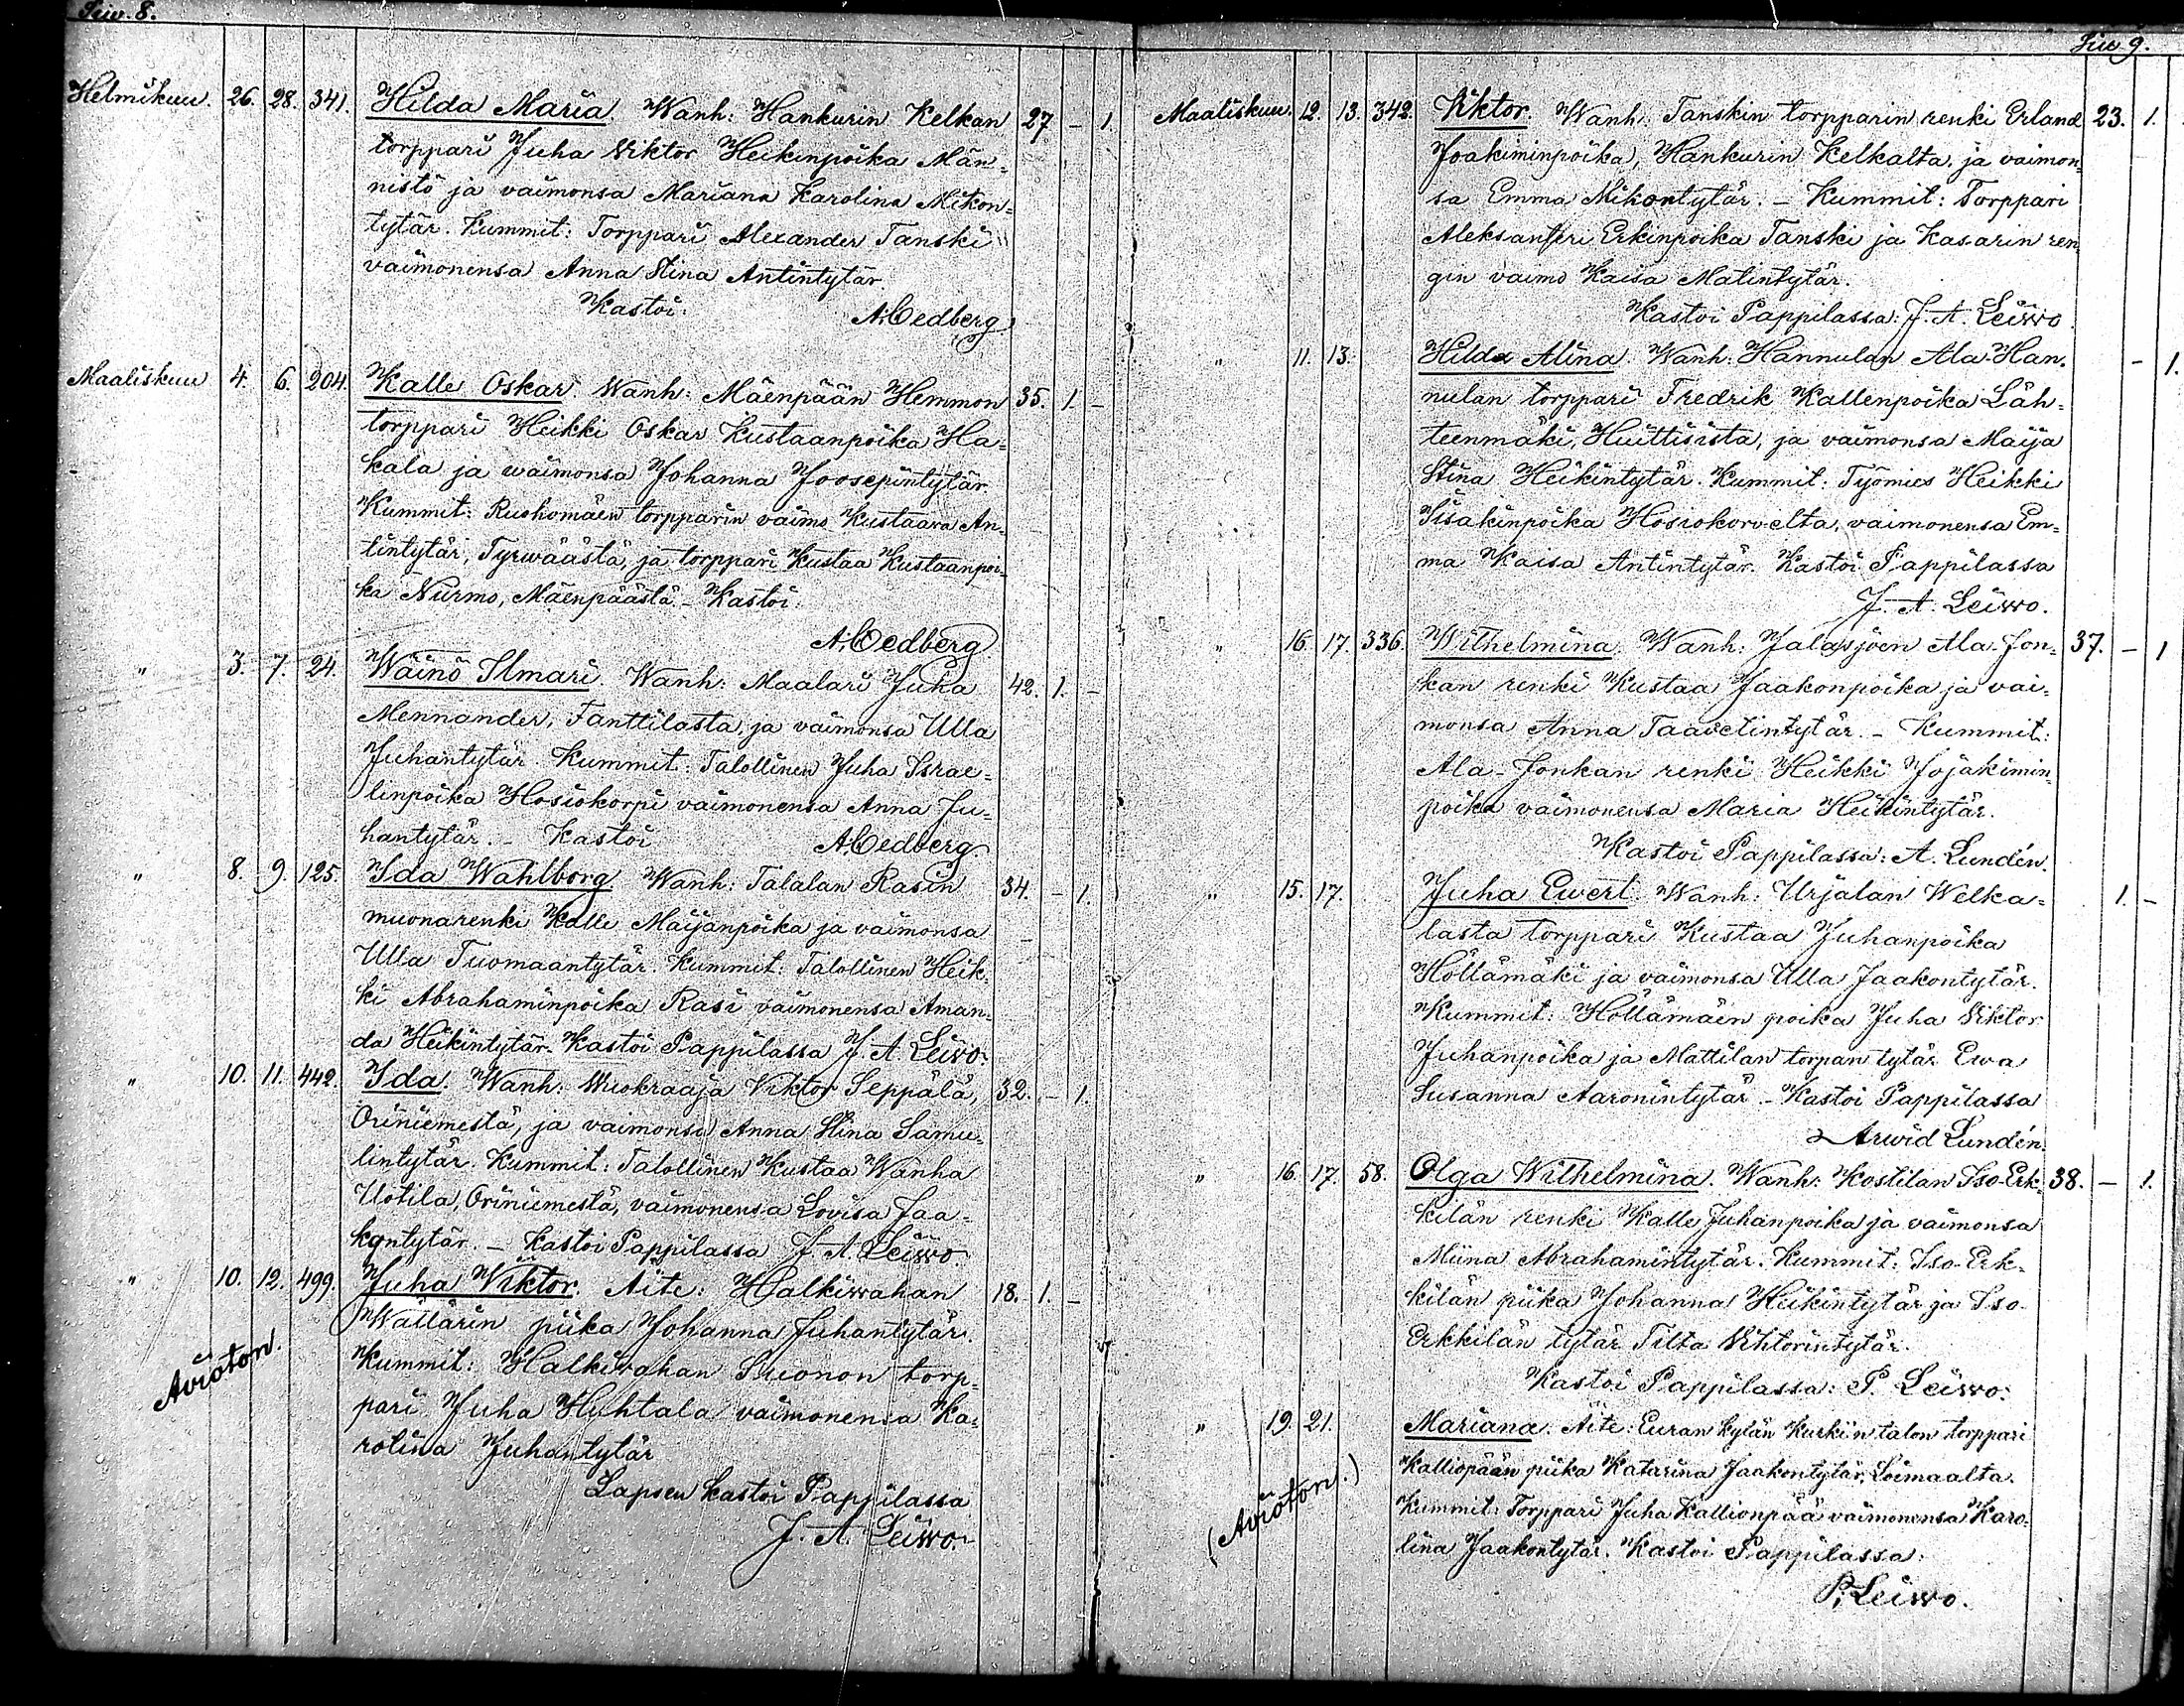 Siv. 8.
Helmikuu. 26. 28. 341. Hilda Maria. Wanh: Hankurin Kelkan 27 - 1.
torppari Juha Viktor Heikinpoika Män-
nistö ja vaimonsa Mariana Karolina Mikon-
tytär. Kummit: Torppari Alexander Tanski
vaimonensa Anna Stina Antintytär.
Kastoi: A. Cedberg
Maaliskuu 4. 6. 204. Kalle Oskar. Wanh: Mäenpään Hemmon 35. 1. -
torppari Heikki Oskar Kustaanpoika Ha-
kala ja waimonsa Johanna Joosepintytär.
Kummit: Ruohomäen torpparin vaimo Kustaava An-
tintytär, Tyrwäästä, ja torppari Kustaa Kustaanpoi-
ka Nurmo, Mäenpäästä. - Kastoi:
A. Cedberg
" 3. 7. 24. Wäinö Ilmari. Wanh: Maalari Juha 42. 1. -
Mennander, Fanttilasta, ja vaimonsa Ulla
Juhantytär. Kummit: Talollinen Juha Israe-
linpoika Hosiokorpi vaimonensa Anna Ju-
hantytär. - Kastoi A. Cedberg.
" 8. 9. 125. Ida Wahlborg Wanh: Talalan Rasin 34. - 1.
muonarenki Kalle Maijanpoika ja vaimonsa
Ulla Tuomaantytär. Kummit: Talollinen Heik-
ki Abrahaminpoika Rasi vaimonensa Aman-
da Heikintytär. Kastoi Pappilassa J. A. Leivo.
" 10. 11. 442. Ida. Wanh: Wuokraaja Viktor Seppälä, 32. - 1.
Oriniemestä, ja vaimonsa Anna Stina Samu-
lintytär. Kummit: Talollinen Kustaa Wanha
Uotila, Oriniemestä, vaimonensa Lovisa Jaa-
kontytär. - Kastoi Pappilassa J. A. Leivvo.
" 10. 12. 499. Juha Viktor. Äite: Halkivvahan 18. 1. -
Wällärin piika Johanna Juhantytär.
Avioton.
Kummit: Halkivahan Suonon torp-
pari Juha Huhtala vaimonensa Ka-
rolina Juhantytär
Lapsen kastoi Pappilassa
J. A. Leivvo.
Siv 9.
Maaliskuu. 12. 13. 342. Viktor. Wanh: Tanskin torpparin renki Erland 23. 1.
Joakiminpoika, Hankurin Kelkalta, ja vaimon-
sa Emma Mikontytär. - Kummit: Torppari
Aleksanteri Erkinpoika Tanski ja Kasarin ren-
gin vaimo Kaisa Matintytär.
Kastoi Pappilassa: J. A. Leivvo
" 11. 13. Hilda Alina. Wanh: Hannulan Ala-Han- - 1.
nulan torppari Fredrik Kallenpoika Läh-
teenmäki, Huittisista, ja vaimonsa Maija
Stina Heikintytär. Kummit: Työmies Heikki
Iisakinpoika Hosiokorvelta, vaimonensa Em-
ma Kaisa Antintytär. Kastoi Pappilassa
J. A. Leivvo.
" 16. 17. 336. Wilhelmina. Wanh: Jalasjoen Ala-Jon- 37. - 1
kan renki Kustaa Jaakonpoika ja vai-
monsa Anna Taavetintytär. - Kummit:
Ala-Jonkan renki Heikki Jojakimin-
poika vaimonensa Maria Heikintytär.
Kastoi Pappilassa: A. Lundén.
" 15. 17. Juha Ewert. Wanh: Urjalan Welka- 1. -
lasta torppari Kustaa Juhanpoika
Höllämäki ja vaimonsa Ulla Jaakontytär.
Kummit: Höllämäen poika Juha Viktor
Juhanpoika ja Mattilan torpan tytär Ewa
Susanna Aaronintytär. - Kastoi Pappilassa
Arwid Lundén.
" 16. 17. 58. Olga Wilhelmina. Wanh: Kostilan Iso-Erk- 38. - 1.
kilän renki Kalle Juhanpoika ja vaimonsa
Miina Abrahamintytär. Kummit: Iso-Erk-
kilän piika Johanna Heikintytär ja Iso-
Erkkilän tytär Tilta Vihtorintytär.
Kastoi Pappilassa: P. Leivvo.
" 19. 21. Mariana. Äite: Euran kylän Kurkin talon torppari
Kalliopään piika Katarina Jaakontytär, Loimaalta.
(Avioton.)
Kummit: Torppari Juha Kallionpää vaimonensa Karo-
lina Jaakontytär. Kastoi Pappilassa:
P. Leivvo.